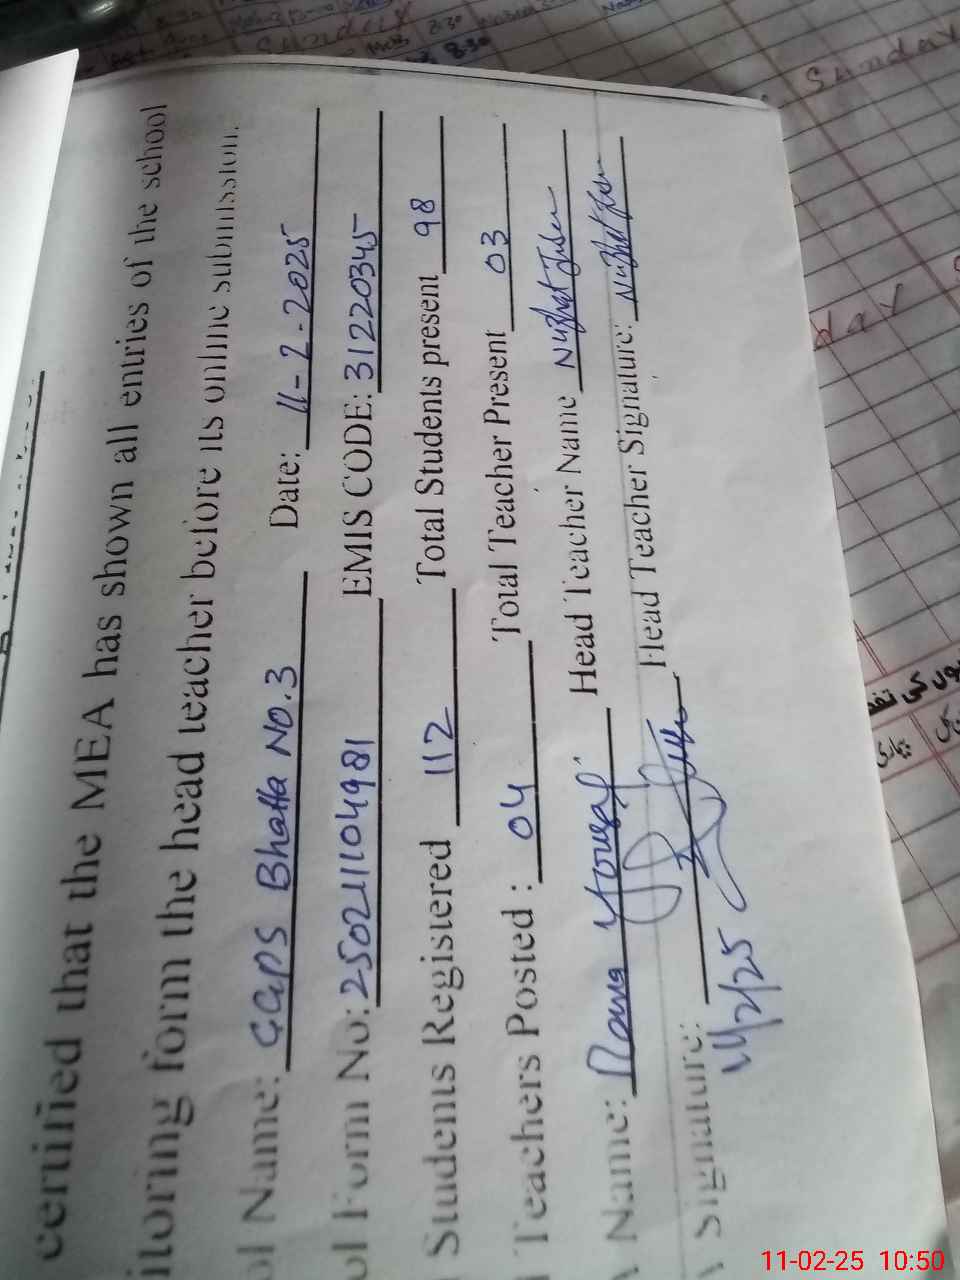 certified that the MEA has shown all entries of the school
itoring form the head teacher before its online submission.
ol Name: GGPS Bhatta No.3 Date: 11-2-2025
ol Form No: 2502111104981 EMIS CODE: 31220345
Students Registered 112 Total Students present 98
Teachers Posted : 04 Total Teacher Present 03
A Name: Rana Yousaf Head Teacher Name Nuzhat
A Signature: Head Teacher Signature: Nuzhat
11/2/25
Sunday
Sunday
8:30
day
بیماری
11-02-25 10:50